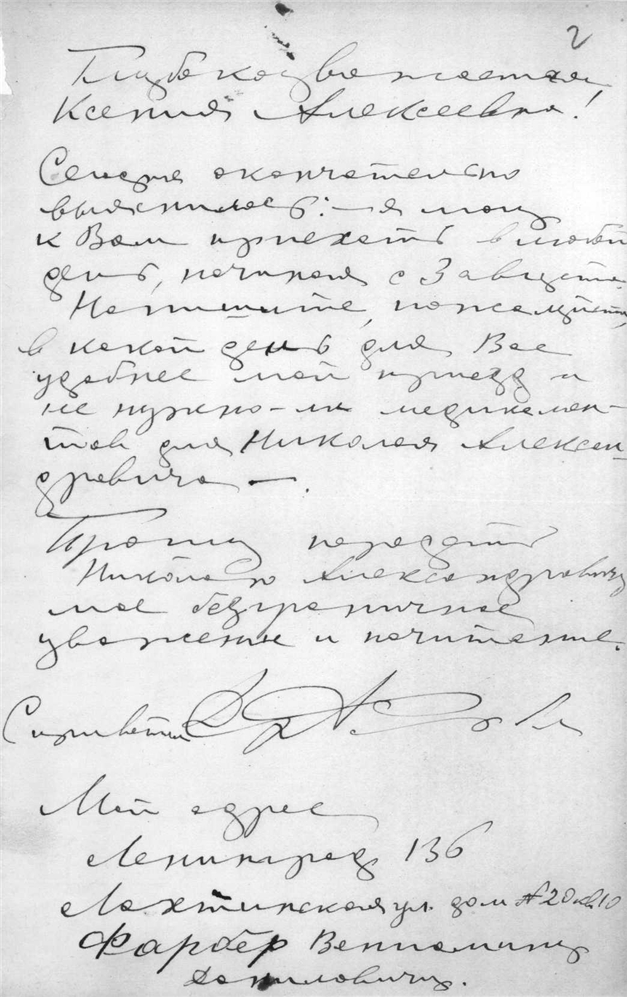 2
Глубокоуважаемая
Ксения Алексеевна!
Сегодня окончательно
выяснилось: – я могу
к Вам приехать в любой
день, начиная с 3 августа.
Напишите, пожалуйста,
в какой день для Вас
удобнее мой приезд и
не нужно-ли медикамен-
тов для Николая Алексан-
дровича —.
Прошу передать
Николаю Александровичу
мое безграничное
уважение и почитание.
С приветом
Мой адрес
Ленинград 136
Лахтинская ул. дом № 20 кв 10
Фарбер Вениамину
Даниловичу.